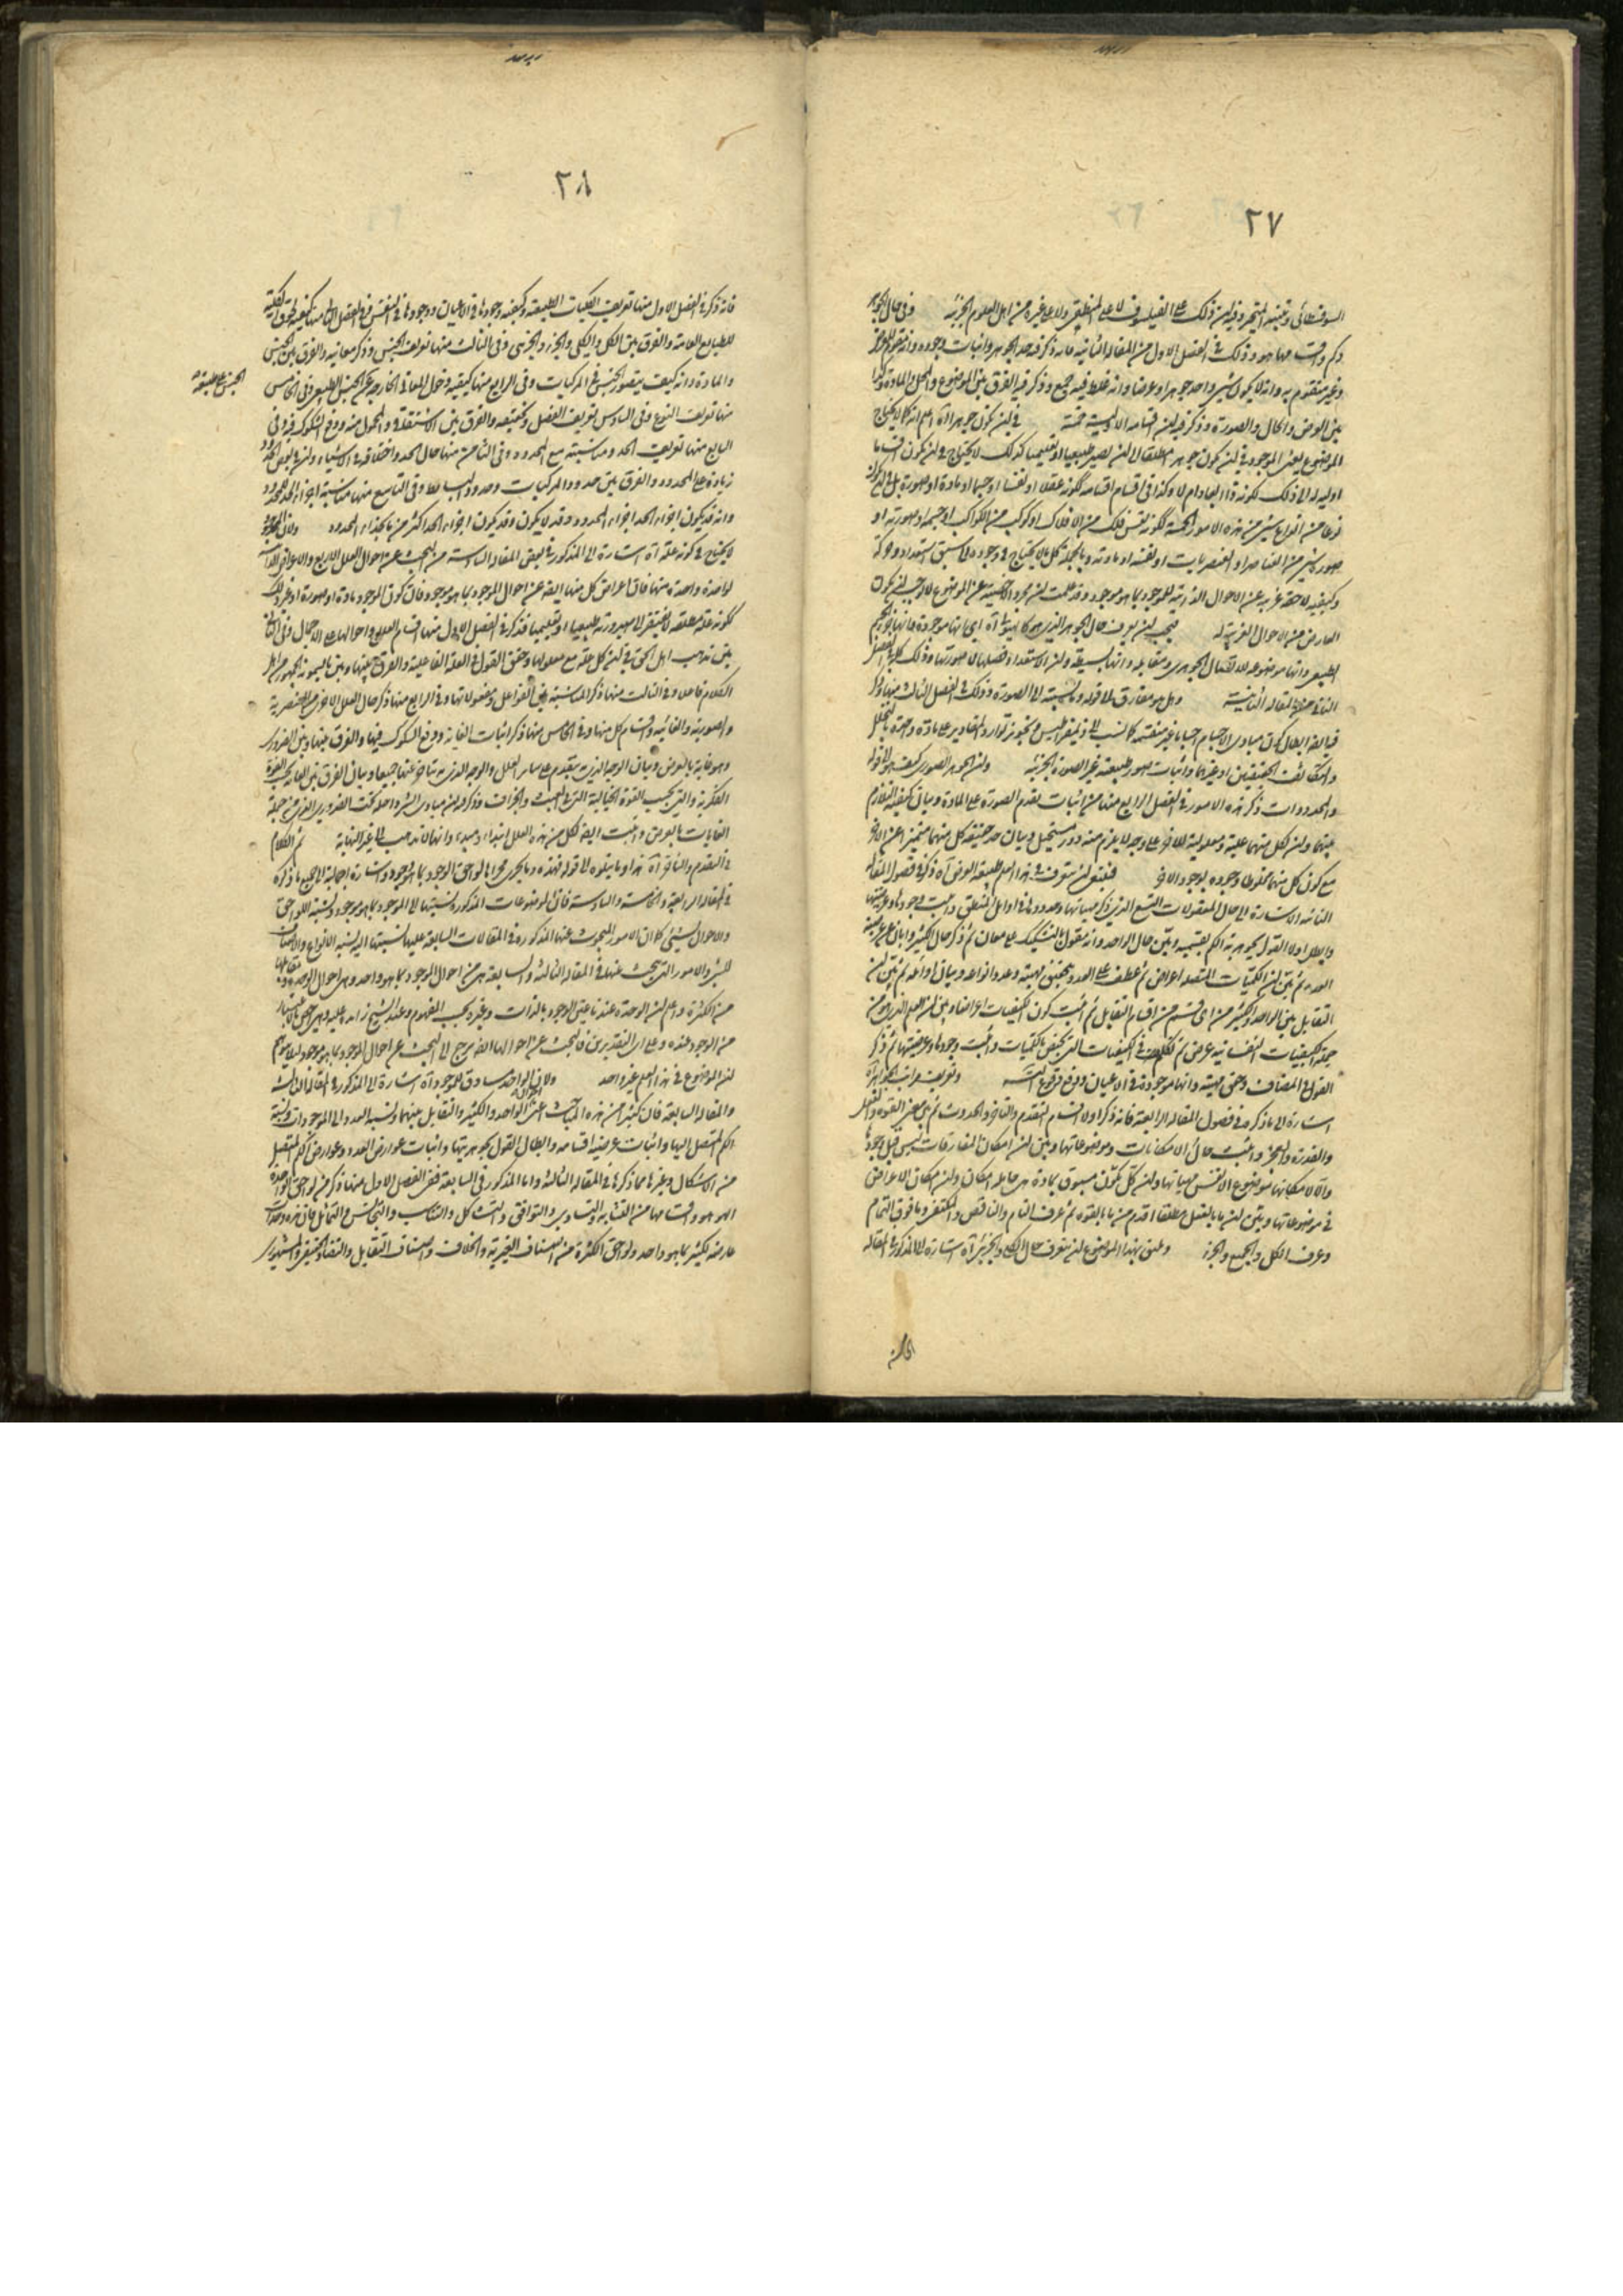 ٢٧
السوفسطائي وتنبيه المتحير وفيه ان ذلك على الفيلسوف لا على المنطقي ولا على غيره من اهل العلوم الجزئية وفي حال الجوهر
وذلك في الفصل الاول من المقالة الثانية فانه ذكر فيه حد الجوهر واثبات وجوده وانه متقوم
وغير متقوم به وانه لا يكون شيء واحد جوهرا وعرضا وانه غلط فيه جمع وذكر فيه الفرق بين الموضوع والمحل والمادة
بين العرض والحال والصورة وذكر فيه ان اقسامه الاولية خمسة في ان يكون جوهرا
الموضوع يعني الموجود في ان يكون جوهر مطلقا الى ان يصير طبيعيا او تعليميا كذلك لا يحتاج في ان يكون
اولية له الى ذلك لكونه ذا ابعاد ام لا وكذا في اقسام اقسامه لكونه عقلا او نفسا او جسما او مادة او صورة
نوعا من انواع شيء من هذه الامور الخمسة لكونه نفس فلك من الافلاك او كوكب من الكواكب او جسمه او صورته او
صورة شيء من العناصر او العنصريات او نفسه او مادته وبالجملة كل ما لا يحتاج في وجوده الى سبق استعداد وحركة
وكيفية لاحقة غريبة عن الاحوال الذاتية للموجود بما هو موجود وقد علمت ان مجرد الاخصية عن الموضوع لا يوجب ان يكون
العارض من الاحوال الغريبة له فيجب ان يعرف حال الجوهر الذي هو كالهيولى آه اي انها موجودة
الطبيعي وانها موضوعه للاتصال الجوهري ومقابله وانها بسيطة وان الاستعداد فصلها لا صورتها وذلك كله في الفصل
الثاني من المقالة الثانية وهل هو مفارق الى قوله وما نسبته الى الصورة وذلك في الفصل الثالث منها وذكر
فيه ايضا ابطال كون مبادي الاجسام اجساما غير منقسمة كما نسب الى ذيمقراطيس وتجويز توارد المقادير على مادة واحدة بالتخلخل
والتكاثف الحقيقيين او غيرهما واثبات صور طبيعية غير الصورة الجرمية وان الجوهر الصوري كيف هو الى قوله
والمحدودات ذكر هذه الامور في الفصل الرابع منها من اثبات تقدم الصورة على المادة وبيان كيفية التلازم
بينهما وان لكل منهما علية ومعلولية للاخرى على وجه لا يلزم منه دور مستحيل وبيان حد حقيقة كل منهما متميزا عن الاخر
مع كون كل منهما مخلوطا وجوده بوجود الاخر فينبغي ان نتعرف في هذا العلم طبيعة العرض آه ذكر في فصول المقالة
الثالثة الاشارة الى حال المقولات التسع الذي ذكر ماهياتها وحدودها في اوائل المنطق واثبت وجودها وعرضيتها
وابطل اولا القول بجوهرية الكم بقسميه وبيّن حال الواحد وانه مقول بالتشكيك على معان ثم ذكر حال الكثير وابان عرضية
العدد ثم بيّن ان الكميات المتصلة اعراض ثم عطف على العدد بتحقيق ماهيته وحد انواعه وبيان اوائله ثم بيّن ان
التقابل بين الواحد والكثير من اي قسم من اقسام التقابل ثم اثبت كون الكيفيات اعراضا وبيّن ان العلم الذي هو من
جملة الكيفيات النفسانية عرض ثم تكلم في الكيفيات التي تختص بالكميات واثبت وجودها وعرضيتها ثم ذكر
القول في المضاف وحقق ماهيته وانها موجودة في الاعيان ودفع
اشارة الى ما ذكره في فصول المقالة الرابعة فانه ذكر اولا اقسام التقدم والتاخر والحدوث ثم بين معنى القوة والفعل
والقدرة والعجز واثبت حال الامكانات وموضوعاتها وبيّن ان امكان المفارقات ليس قبل وجودها
وان لا مكانها موضوع الا نفس ماهياتها وان كل متكون مسبوق بمادة هي حاملة امكان وان امكان الاعراض
في موضوعاتها وبيّن ان ما بالفعل مطلقا اقدم من ما بالقوة ثم عرف التام والناقص والمكتفي وما فوق التمام
وعرف الكل والجميع والجزء وعلى بهذا الموضع ان نتعرف حال الكلي والجزئي آه اشارة الى المذكور في المقالة
الخامسة
٢٨
فانه ذكر في الفصل الاول منها تعريف الكليات الطبيعية وكيفية وجودها في الاعيان ووجودها في النفس وفي الفصل الثاني منها كيفية لحوق الكلية
للطبايع العامة والفرق بين الكل والكلي والجزء والجزئي وفي الثالث منها تعريف الجنس وذكر معانيه والفرق بين الجنس
والمادة وانه كيف يتصور الجنس في المركبات وفي الرابع منها كيفية دخول المعاني الخارجة عن الجنس على طبيعة الجنس وفي الخامس
منها تعريف النوع وفي السادس تعريف الفصل وتحقيقه والفرق بين الاشتقاقي والمحمول منه ودفع الشكوك فيه وفي
السابع منها تعريف الحد ومناسبته مع المحدود وفي الثامن منها حال الحد واختلافه في الاشياء وان في بعض الحدود
زيادة على المحدود والفرق بين حدود المركبات وحدود البسائط وفي التاسع منها مناسبة اجزاء الحد للمحدود
وانه قد يكون اجزاء الحد اجزاء المحدود وقد لا يكون وقد يكون اجزاء الحد اكثر من ما بحذاء المحدود ولان الموجود
لا يحتاج في كونه علة آه اشارة الى المذكور في بعض المقالة السادسة من البحث عن احوال العلل الاربع والاعراض الذاتية
لواحدة واحدة منها فان اعراض كل منها ايضا عن احوال الموجود بما هو موجود فان كون الموجود مادة او صورة او غير ذلك
ككونه علة مطلقة لا يفتقر الى صيرورته طبيعيا او تعليميا فذكر في الفصل الاول منها اقسام العلل واحوالها على الاجمال وفي الثاني
بيّن مذهب اهل الحق في ان كل علة مع معلولها وحقق القول في العلة الفاعلية والفرق بينها وبين ما يسمونه الجمهور من اهل
الكلام فاعلا وفي الثالث منها ذكر المناسبة بين الفواعل ومفعولاتها وفي الرابع منها ذكر حال العلل الاخرى من العنصرية
والصورية والغائية واقسام كل منها وفي الخامس منها ذكر اثبات الغاية ودفع الشكوك فيها والفرق بينها وبين الضروري
وهو غاية بالعرض وبيان الوجه الذي به يتقدم على سائر العلل والوجه الذي به يتاخر عنها جميعا وبيان الفرق بين الغاية بحسب القوة
الفكرية والتي بحسب القوة الخيالية التي في العبث والجزاف وذكر ان مبادي الشر داخلة تحت الضروري الذي من جملة
الغايات بالعرض واثبت ايضا لكل من هذه العلل ابتداء ومبدء وانها لا تذهب الى غير النهاية ثم الكلام
في التقدم والتاخر آه هذا وما يتلوه الى قوله فهذه وما يجري مجراها لواحق الوجود بما هو وجود اشارة اجمالية الى جميع ما ذكره
في المقالة الرابعة والخامسة والسادسة فان الموضوعات المذكورة نسبتها الى الموجود بما هو موجود نسبة اللواحق
والاحوال لشيء كما ان الامور المبحوث عنها المذكورة في المقالات السابقة عليها نسبتها اليه نسبة الانواع والاصناف
للشيء والامور التي يبحث عنها في المقالة الثالثة والسابعة هي من احوال الموجود بما هو واحد وهي احوال الوحدة وما يقابلها
من الكثرة واعلم ان الوحدة عندنا عين الوجود بالذات وغيره بحسب المفهوم وعند الشيخ زائدة عليه وهي اخص
من الوجود عنده وعلى اي التقديرين فالبحث عن احوالها ايضا يرجع الى البحث عن احوال الموجود بما هو موجود لئلا يتوهم
ان الموضوع في هذا العلم غير واحد ولان الواحد مساوق للوجود آه اشارة الى المذكور في المقالة الثالثة
والمقالة السابعة فان كثيرا من هذه المباحث عن احوال الواحد والكثير والتقابل بينهما ونسبة العدد الى الموجودات ونسبة
الكم المتصل اليها واثبات عرضية اقسامه وابطال القول بجوهريتها واثبات عوارض العدد وعوارض الكم المتصل
من الاشكال وغيرها مما ذكرها في المقالة الثالثة واما المذكور في السابعة ففي الفصل الاول منها ذكر من لواحق الواحدة
الهوهو واقسامها من التشابه والتساوي والتوافق والتشاكل والتناسب والتجانس والتماثل فان هذه وحدات
عارضة لكثير بما هو واحد ولواحق الكثرة من اصناف الغيرية والخلاف واصناف التقابل والتضاد الحقيقي والمشهوري
الجنس على طبيعة